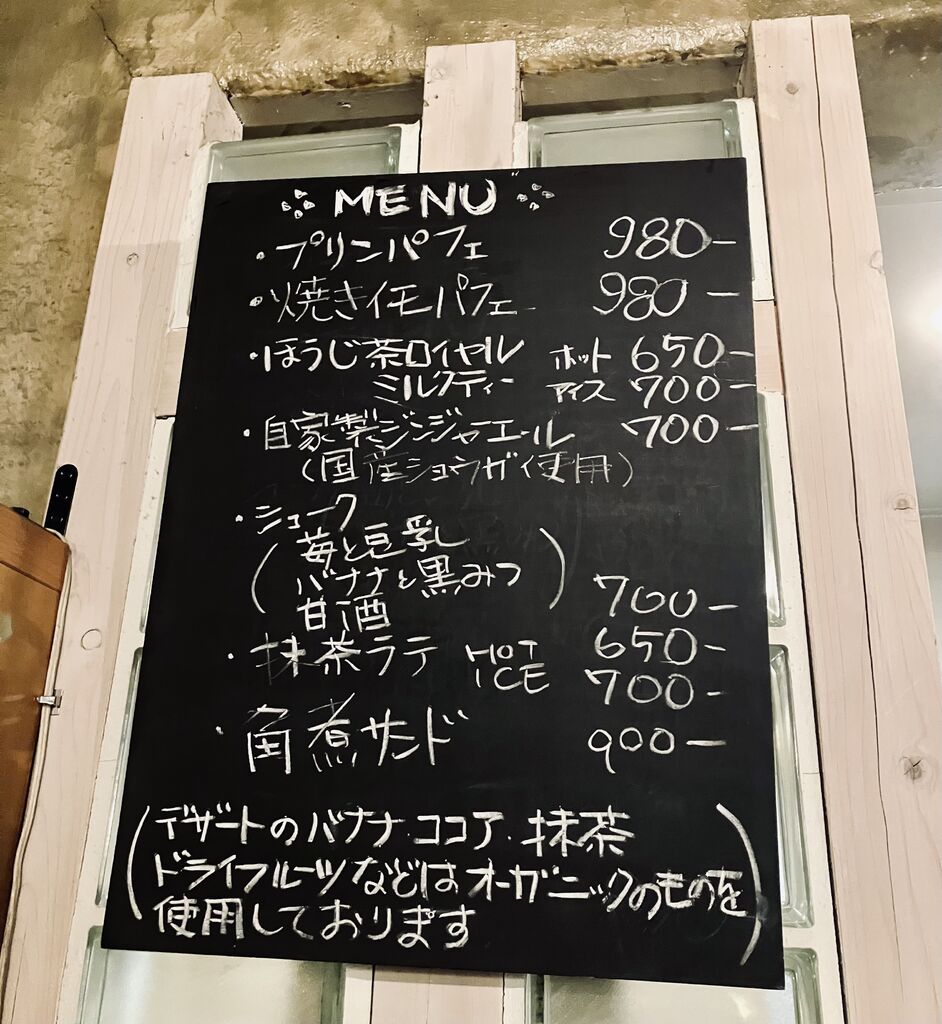 MENU
・プリンパフェ 980-
・焼きイモパフェ 980-
・ほうじ茶ロイヤル ホット 650-
ミルクティー アイス 700-
・自家製ジンジャーエール 700-
(国産ショウガ使用)
・シェーク
(苺と豆乳
バナナと黒みつ)
甘酒 700-
・抹茶ラテ HOT 650-
ICE 700-
・角煮サンド 900-
(デザートのバナナ.ココア.抹茶
ドライフルーツなどはオーガニックのものを
使用しております)